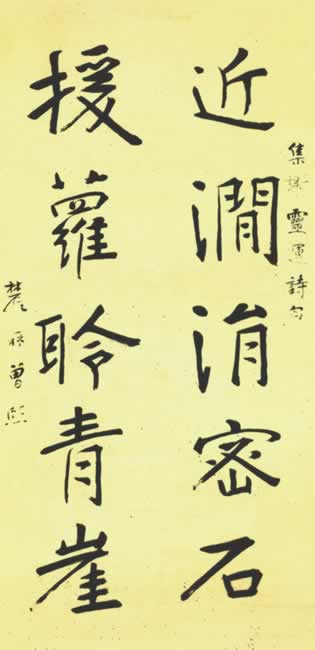 集謝靈運詩句
近澗涓密石
援蘿聆青崖
農髯曾熙